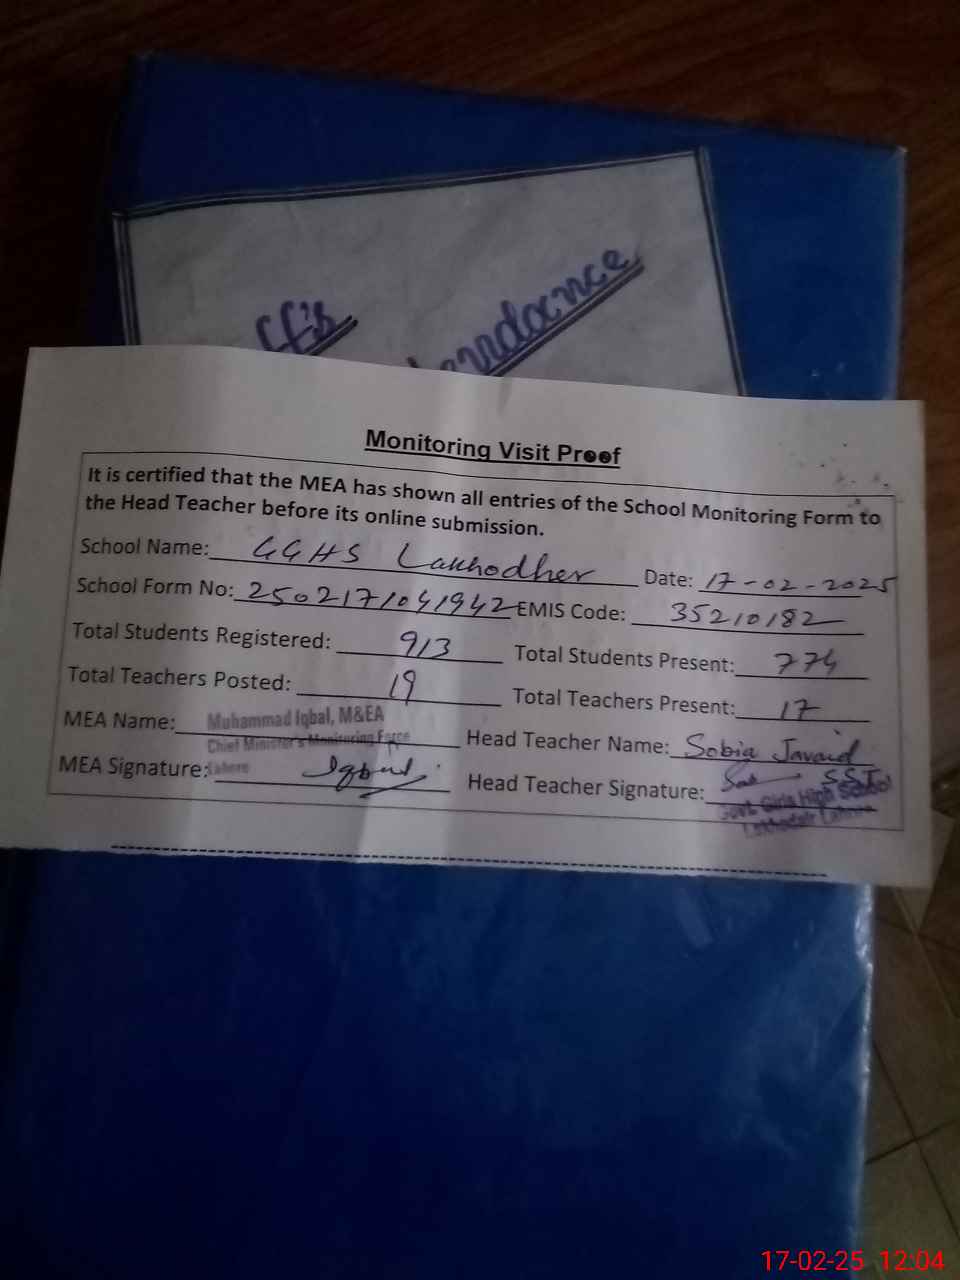 ff's
endance
Monitoring Visit Proof
It is certified that the MEA has shown all entries of the School Monitoring Form to
the Head Teacher before its online submission.
School Name: GGHS Lakhodher Date: 17-02-2025
School Form No: 2502171041942 EMIS Code: 35210182
Total Students Registered: 913 Total Students Present: 774
Total Teachers Posted: 19 Total Teachers Present: 17
MEA Name: Muhammad Iqbal, M&EA
Chief Minister's Monitoring Force
Lahore
Head Teacher Name: Sobia Javaid
MEA Signature: Iqbal Head Teacher Signature: SST
Govt. Girls High School
Lakhodair Lahore
17-02-25 12:04